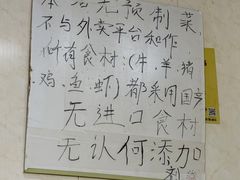 本店无预制菜,
不与外卖平台和作,
所有食材:(牛、羊、猪
、鸡、鱼、虾)都采用国产
无进口食材
无认何添加